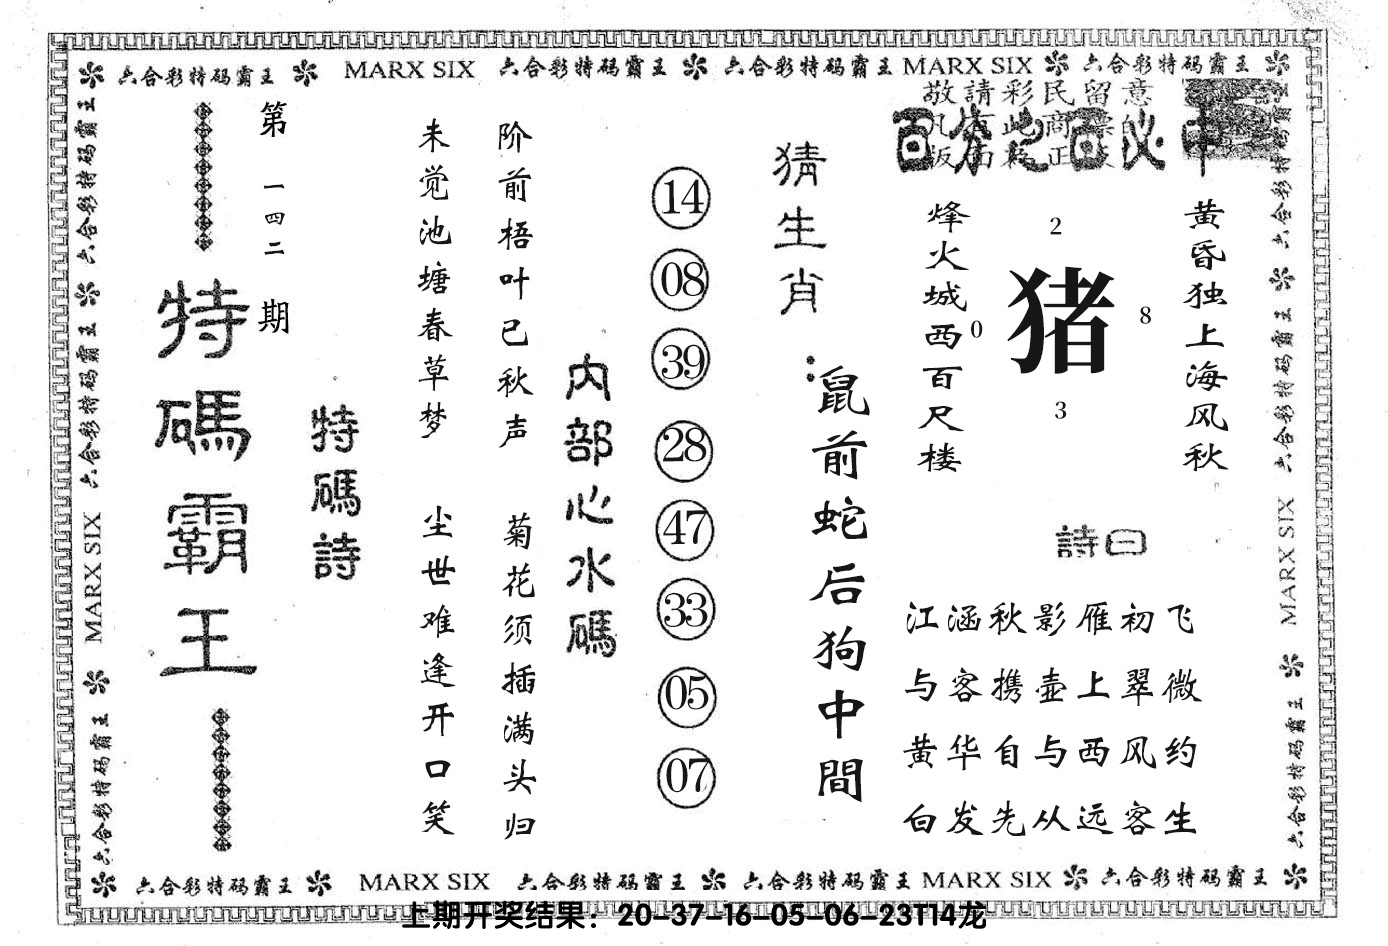 六合彩特码霸王 MARX SIX 六合彩特码霸王 六合彩特码霸王 MARX SIX 六合彩特码霸王
敬請彩民留意
黄昏独上海风秋
烽火城西百尺楼
2
0
猪
8
3
詩曰
江涵秋影雁初飞
与客携壶上翠微
黄华自与西风约
白发先从远客生
猜生肖：
鼠前蛇后狗中間
14
08
39
28
47
33
05
07
内部心水碼
阶前梧叶已秋声
菊花须插满头归
未觉池塘春草梦
尘世难逢开口笑
特碼詩
第一四二期
特碼霸王
六合彩特码霸王
六合彩特码霸王
MARX SIX
六合彩特码霸王
六合彩特码霸王
六合彩特码霸王
MARX SIX
六合彩特码霸王
六合彩特码霸王 MARX SIX 六合彩特码霸王 六合彩特码霸王 MARX SIX 六合彩特码霸王
上期开奖结果：20-37-16-05-06-23T14龙